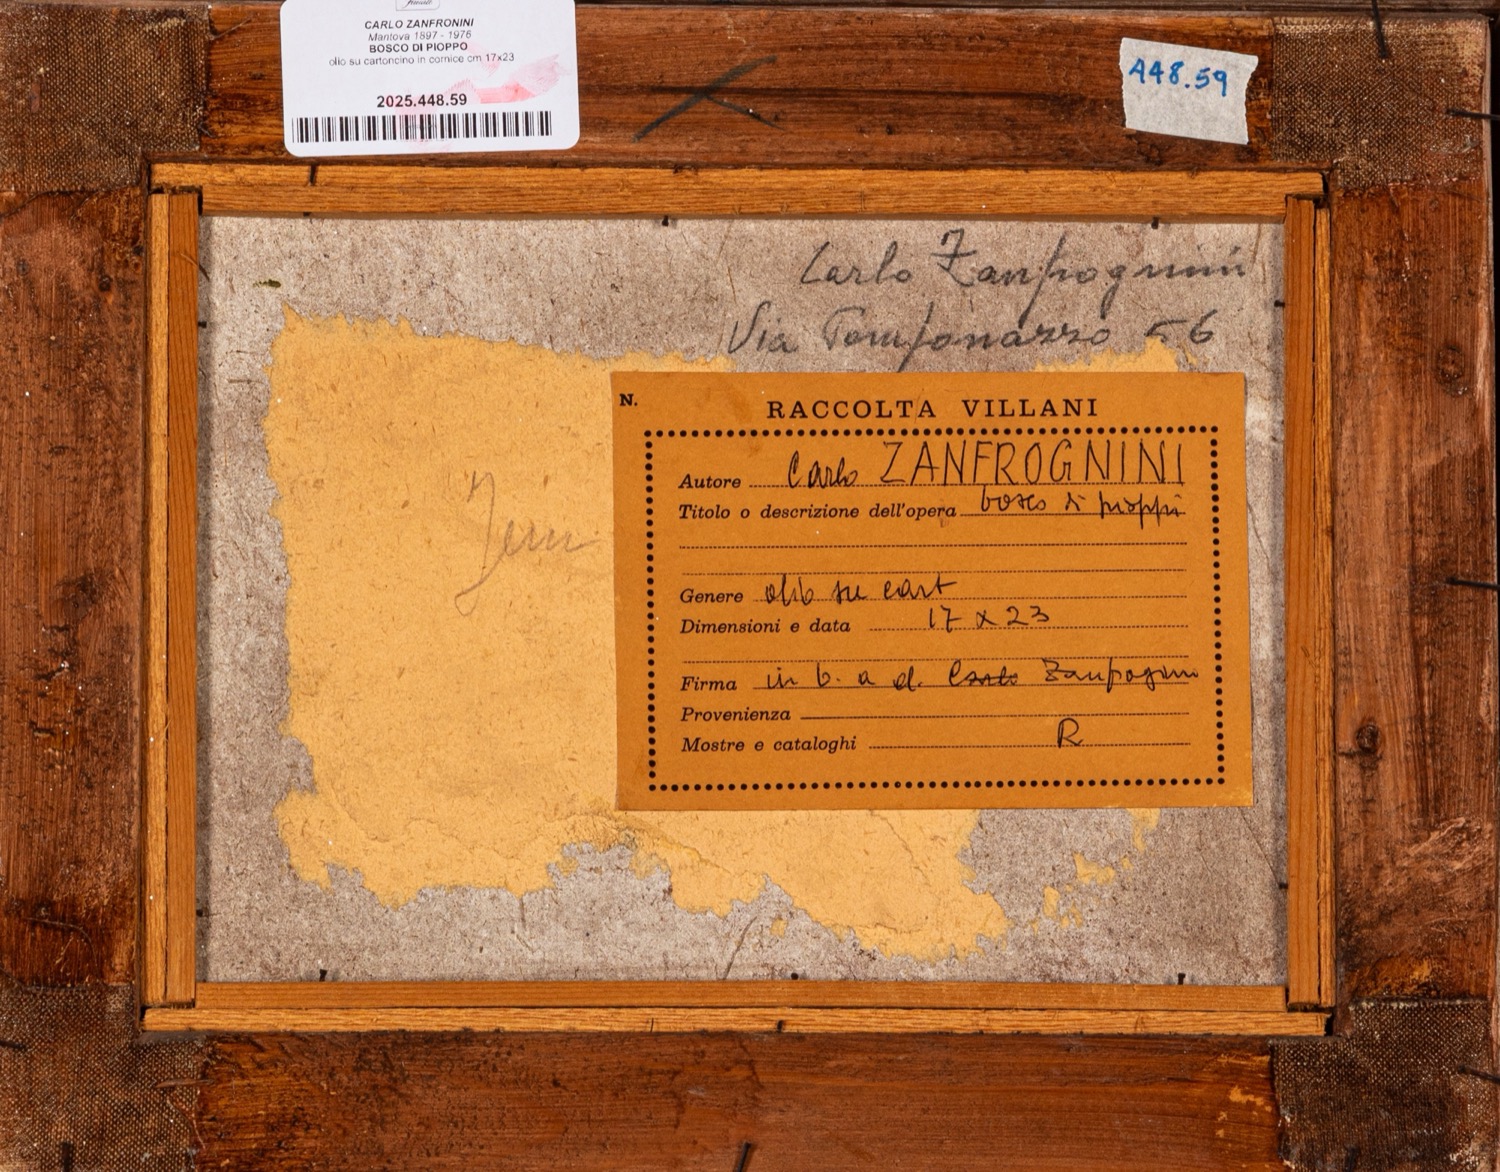 CARLO ZANFRONINI
Mantova 1897 - 1976
BOSCO DI PIOPPO
olio su cartoncino in cornice cm 17x23
2025.448.59
A48.59
Carlo Zanfrognini
Via Pomponazzo 56
N.
RACCOLTA VILLANI
Autore Carlo ZANFROGNINI
Titolo o descrizione dell'opera bosco di pioppi
Genere olio su cart
Dimensioni e data 17 x 23
Firma in b. a d. Carlo Zanfrognini
Provenienza
Mostre e cataloghi R